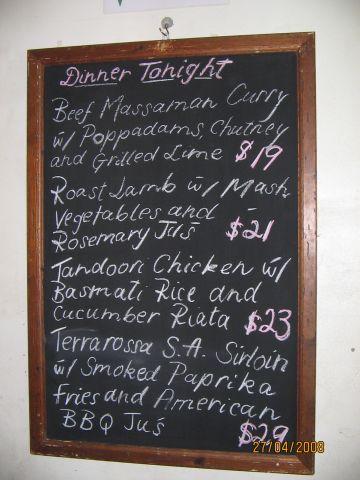 Dinner Tonight
Beef Massaman Curry
w/ Poppadams, Chutney
and Grilled Lime $19
Roast Lamb w/ Mash,
Vegetables and
Rosemary Jus $21
Tandoori Chicken w/
Basmati Rice and
Cucumber Riata $23
Terrarossa S.A. Sirloin
w/ Smoked Paprika
Fries and American
BBQ Jus
$29
27/04/2008